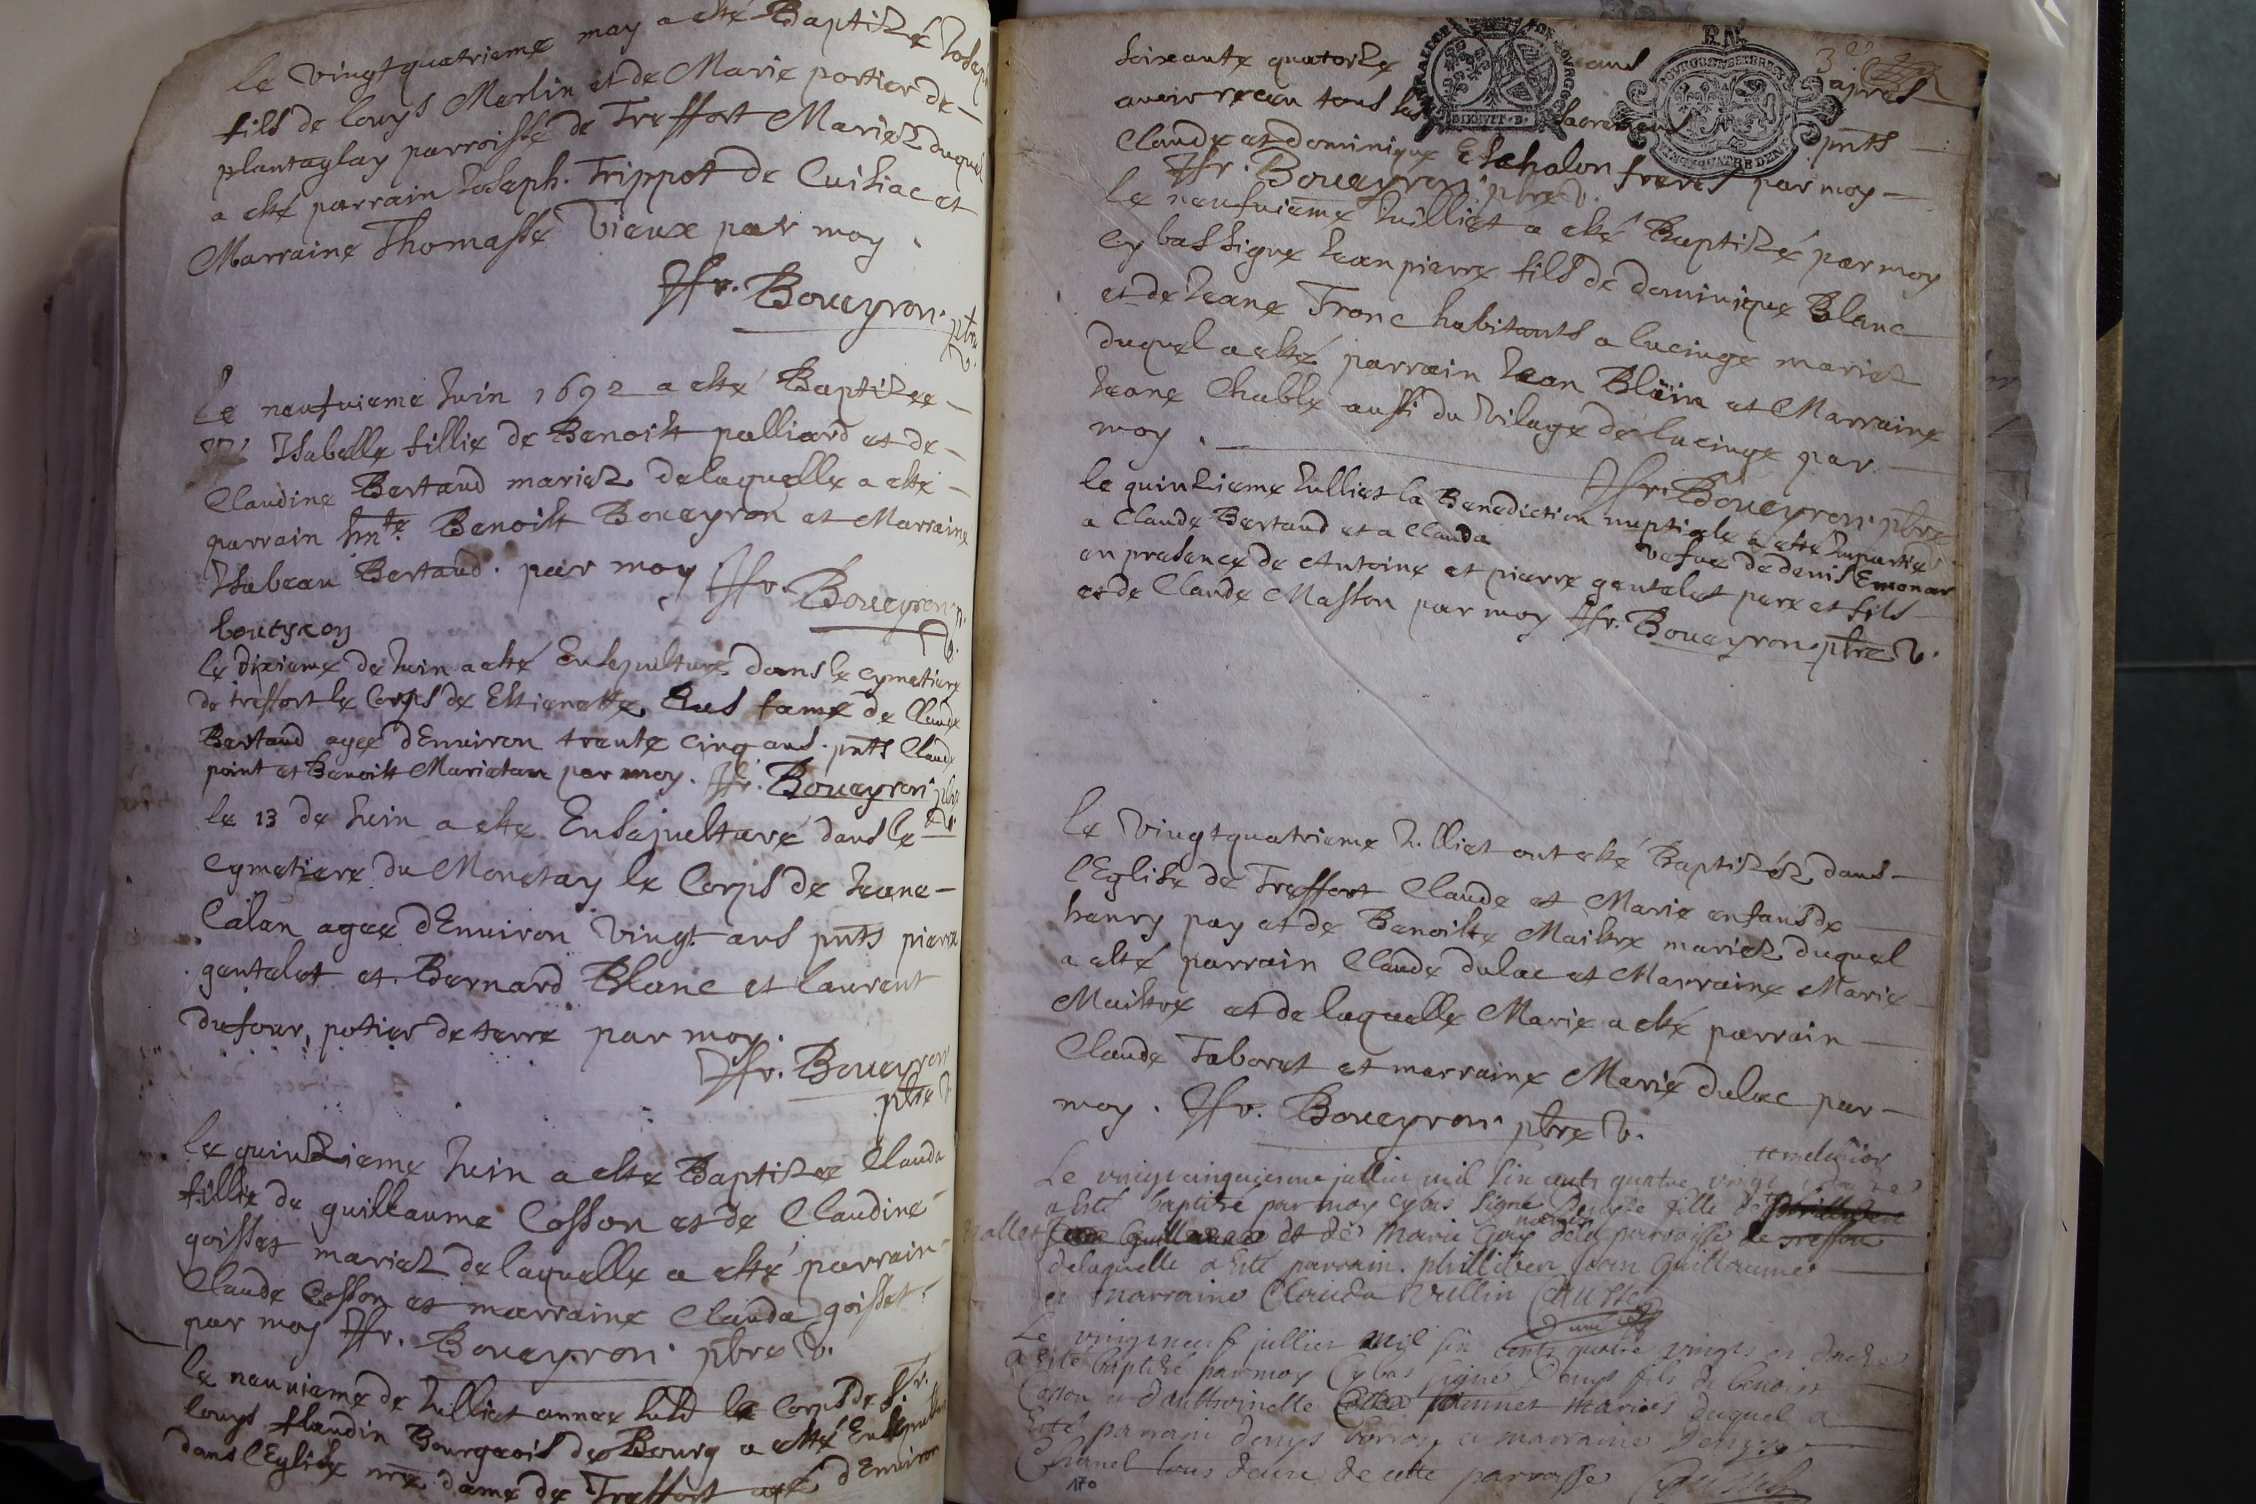 le vingtquatrieme may a esté Baptisé Joseph
fils de louys Merlin et de Marie portier de
plantaglay parroisse de Treffort Mariez duquel
a esté parrain Joseph Trippot de Cuisiac et
Marraine Thomasse Vieux par moy.
Boueyron. pbre v.
Le neufuieme Juin 1692 a esté Baptisee
Isabelle fillie de Benoist palliard et de
Claudine Bertaud mariez delaquelle a esté
parrain hnte. Benoist Boueyron et Marraine
Isabeau Bertaud. par moy Boueyron
le dixieme de Juin a esté Ensepulturé dans le cymetiere
de treffort le Corps de Estienette fame de Claude
Bertaud agee d'Enuiron trente cinq ans. pnts Claude
point et Benoist Marietan par moy. Boueyron pbre v.
le 13 de Juin a esté Ensepulturé dans le
Cymetiere du Monetay le Corps de Jeane
Calan agee d'Enuiron Vingt ans pnts pierre
gentelet et Bernard Blanc et laurent
dufour, potier de terre par moy.
Boueyron
pbre v.
le quinzieme Juin a esté Baptizee Clauda
fillie de guillaume Cosson et de Claudine
goisset mariez de laquelle a esté parrain
Claude Cosson et marraine Clauda goisset.
par moy Boueyron pbre v.
le neuuieme de Julliet annee susd le Corps de Sr.
louys flandin Bourgeois de Bourg a esté Ensepulturé
dans l'Eglise nre dame de Treffort agé d'Enuiron
soixante quatorze ans apres
auoir receu tous les sacremens pnts
Claude et dominique Eschalon freres par moy
Boueyron pbre v.
le neufuieme Juilliet a esté Baptizé par moy
cy bas signe Jean pierre fils de dominique Blanc
et de Jeane Tronc habitants a lucinge mariez
duquel a esté parrain Jean Blain et Marraine
Jeane Chable aussi du Vilage de lucinge par
moy. Boueyron. pbre
le quinzieme Julliet la Benediction nuptiale a esté Impartie
a Claude Bertaud et a Clauda vefue de denis Emonar
en presence de Antoine et pierre gentelet pere et fils
et de Claude Masson par moy Boueyron. pbre v.
le Vingtquatrieme Julliet ont esté Baptizéz dans
l'Eglise de Treffort Claude et Marie enfans de
henry pay et de Benoiste Maistre mariez duquel
a esté parrain Claude dulac et Marraine Marie
Maistre et de laquelle Marie a esté parrain
Claude Taboret et marraine Marie dulac par
moy. Boueyron. pbre v.
Le vingt cinquiesme jullier mil six cents quatre vingt
a Esté baptizé par moy cybas signé Denyse fille de
et de Marie Gay de la parroisse de
delaquelle a Esté parrain. phillibert Jean Guillaume
et marraine Clauda Vullin
Le vingt neuf jullier mil six cents quatre vingts et douze
a Esté baptizé par moy Cybas signé Denys fils de benoist
Cosson et d'anthoinette mariés duquel a
Esté parrain denys et marraine Denyse
tous deux de cette parroisse
170